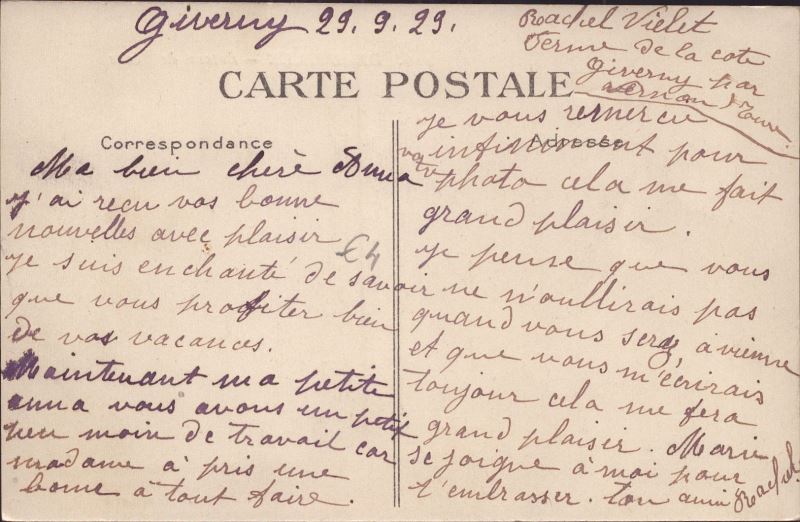 Giverny 29.9.29.
Rachel Viélet
Ferme de la cote
Giverny par
Vernon Eure.
CARTE POSTALE
Correspondance
Adresse
Ma bien cherè Anna
j'ai reçu vos bonne
nouvelles avec plaisir
je suis enchanté de savoir
que vous profiter bien
de vos vacances.
Maintenant ma petite
anna vous avons un petit
peu moin de travail car
madame à pris une
bonne à tout faire.
€4
je vous remercie
infiniment pour
votre photo cela me fait
grand plaisir.
je pense que vous
ne n'oullirais pas
quand vous serez, a vienne
et que vous m'écrirais
toujour cela me fera
grand plaisir. Marie
se joigne à moi pour
t'embrasser. ton amie
Rachel